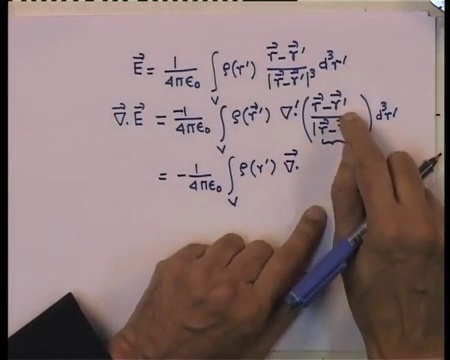 E⃗ = 1/4πε₀ ∫_V ρ(r') (r⃗ - r⃗')/|r⃗ - r⃗'|³ d³r'
∇⃗·E⃗ = -1/4πε₀ ∫_V ρ(r⃗') ∇⃗'·(r⃗ - r⃗'/|r⃗ -) d³r'
= - 1/4πε₀ ∫_V ρ(r') ∇⃗·